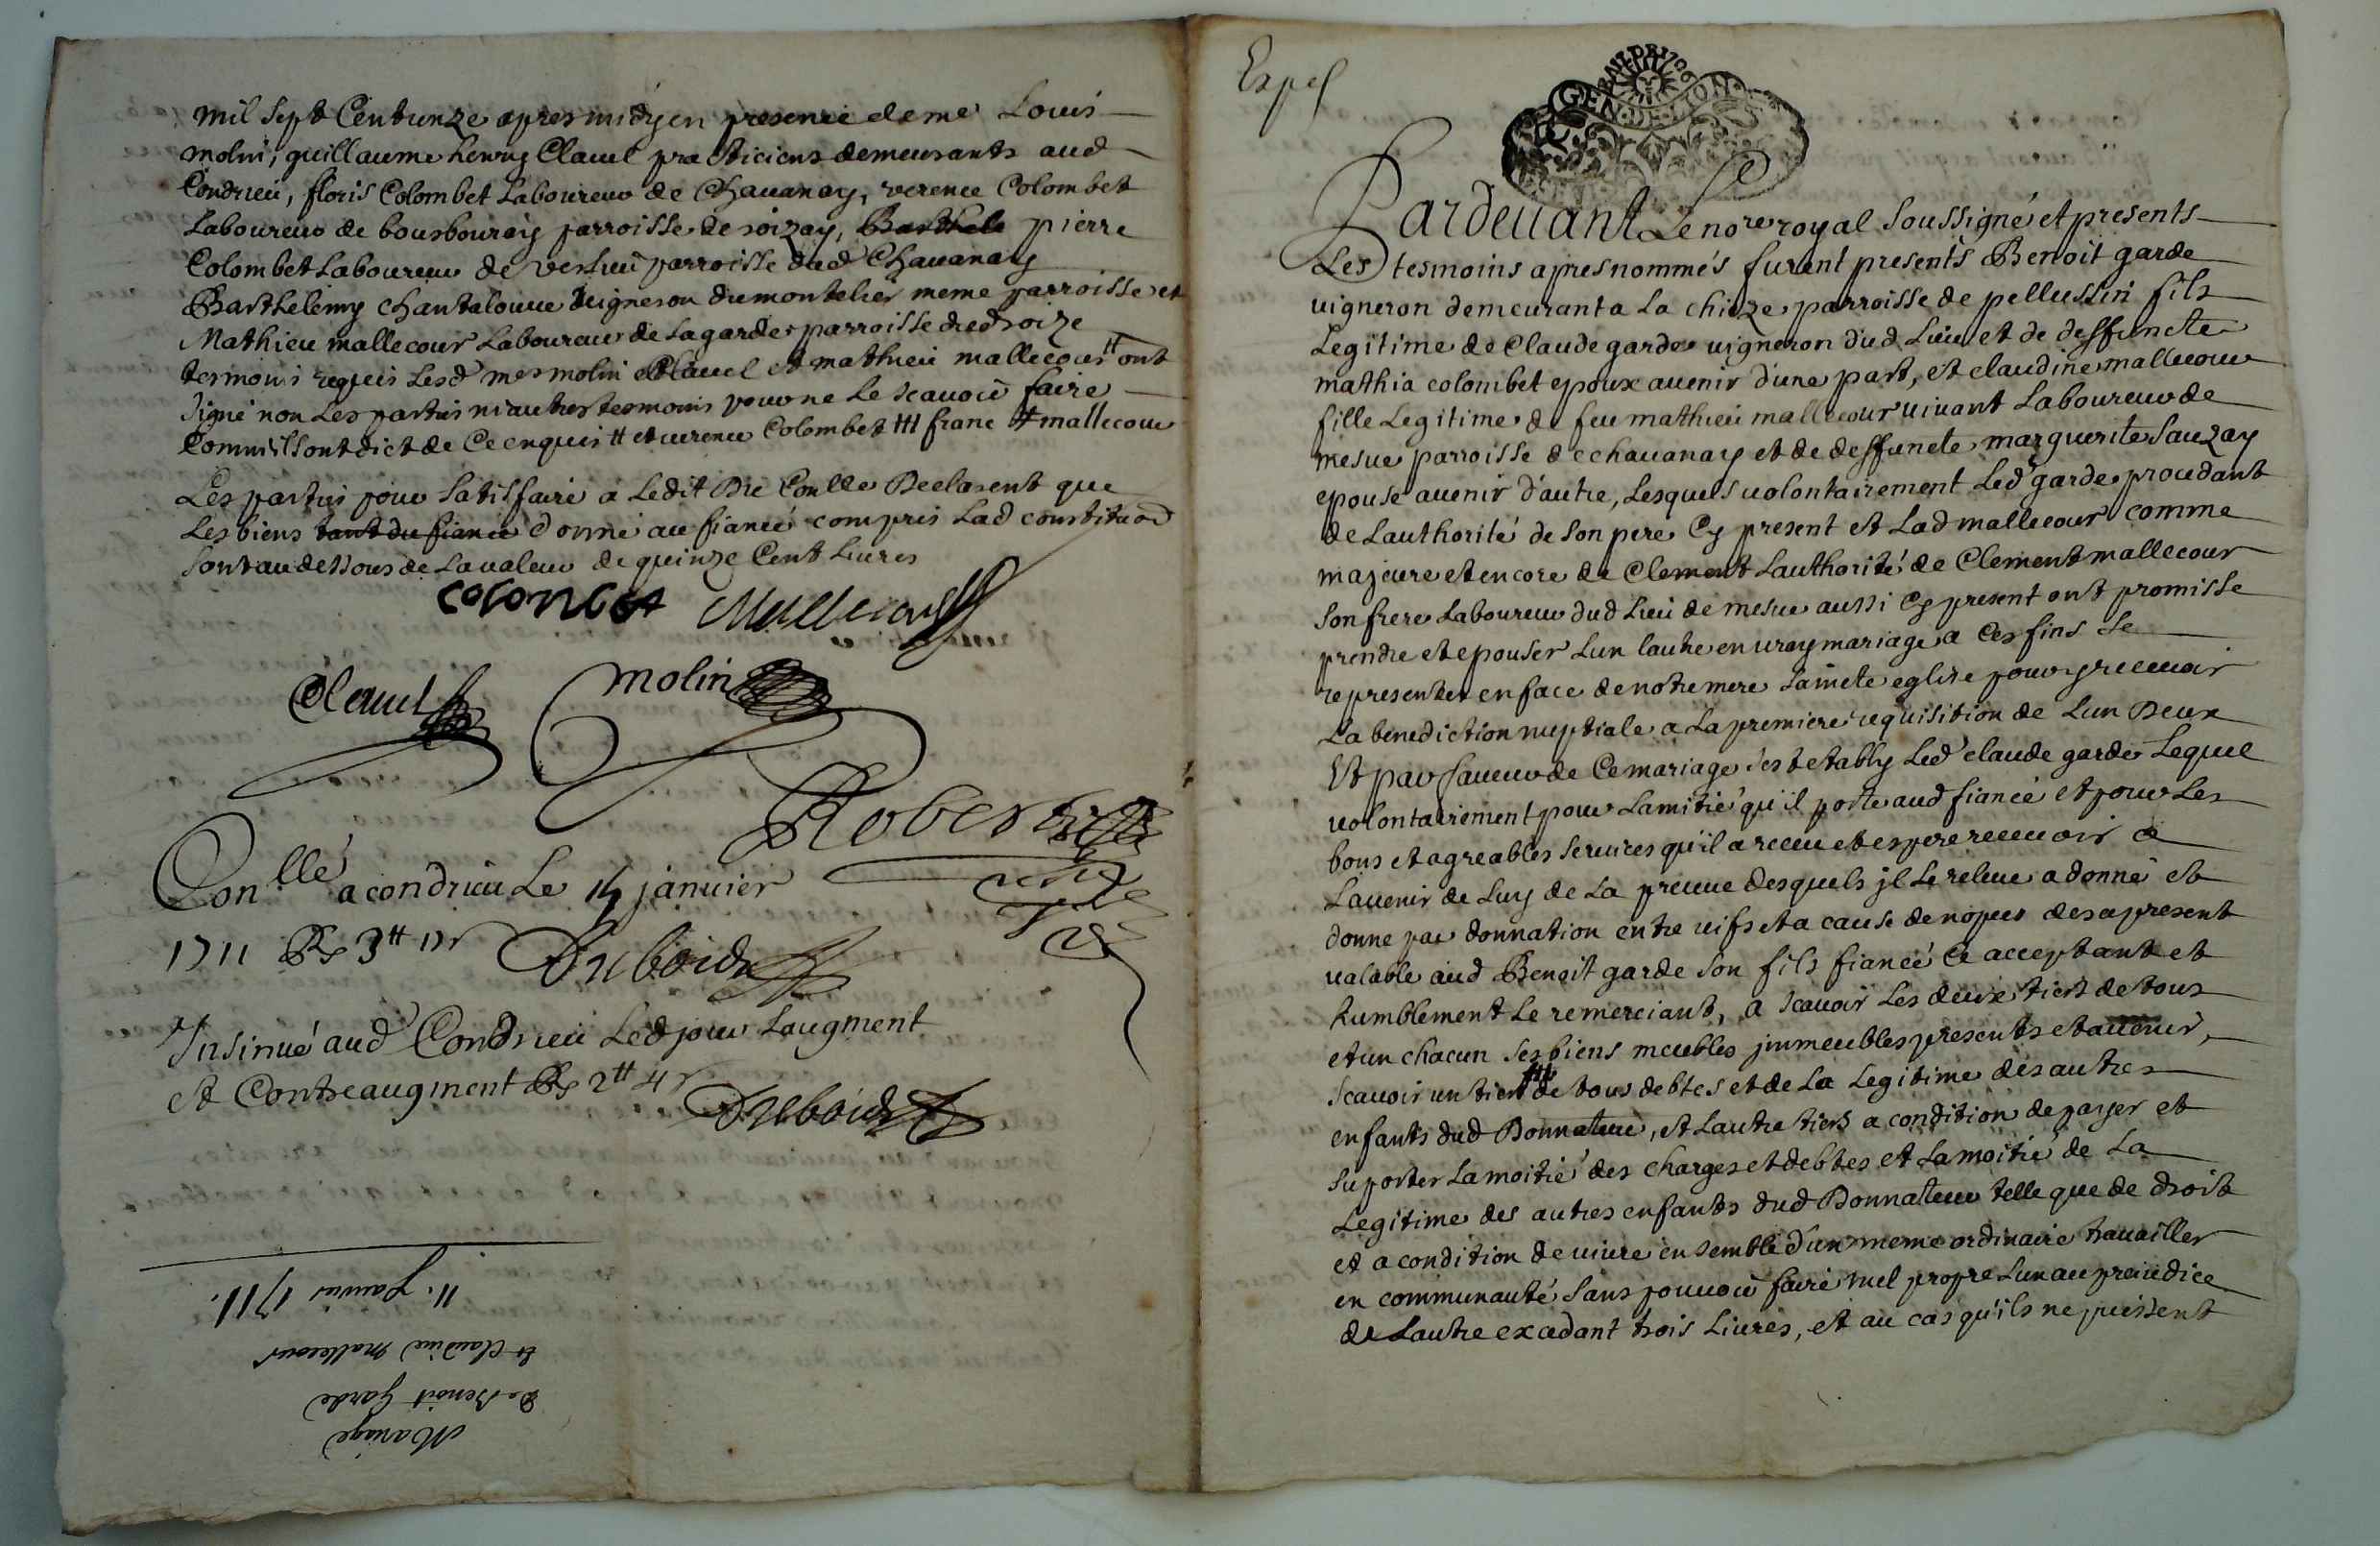 mil sept Cent unze apres midy en presence de me Louis
molin, guillaume henry Clauel practiciens demeurants aud
Condrieu, floris Colombet Laboureur de Chauanay, verence Colombet
Laboureur de bourbouray parroisse de roizay, Barthele pierre
Colombet Laboureur de verlieu parroisse dud Chauanay
Barthelemy chantelouue vigneron du montelier meme parroisse et
Mathieu mallecour Laboureur de Lagarde parroisse dud roize
tesmoins requis Lesd mes molin Clauel et mathieu mallecour # ont
signé non Les parties ni autres tesmoins pour ne Le scauoir faire
Comm ils ont dict de Ce enquis # et verence Colombet franc # mallecour
Les parties pour satisfaire a Ledit Du Conlle Declarent que
Les biens tant du fiancé donné au fiancé compris Lad constituon
sont au dessous de La valeur de quinze Cent Liures
colonbet Mallecour
Clauel molin
Robert
Conllé a condrieu Le 14 januier
1711 Rs 3# 11s Duboid
Insinué aud Condrieu Led jour Laugment
et Contreaugment Rs 2# 4s Duboid
Mariage
de Benoit Garde
et Claudine Mallecour
11. Januier 1711.
Expel
GEN. DE LION
Pardeuant Le nore royal soussigné et presents
Les tesmoins apres nommés furent presents Benoit garde
uigneron demeurant a La chieze parroisse de pellussin fils
Legitime de Claude garde uigneron dud Lieu et de deffuncte
mathia colombet epoux auenir d'une part, et claudine mallecour
fille Legitime de feu mathieu mallecour uiuant Laboureur de
mesue parroisse de chauanay et de deffuncte marguerite sauzay
epouse auenir d'autre, Lesquels uolontairement Led garde proudant
de Lauthorité de son pere Cy present et Lad mallecour comme
majeure et encore de Clement Lauthorité de Clement mallecour
son frere Laboureur dud Lieu de mesue aussi Cy present ont promis se
prendre et epouser Lun lautre en uray mariage a Ces fins se
representer en face de notre mere saincte eglise pour y receuoir
La benediction nuptiale a La premiere requisition de Lun Deux
Et par faueur de Ce mariage sest etably Led claude garde Lequel
uolontairement pour Lamitié qu'il porte aud fiancé et pour Les
bons et agreables seruices qu'il a receu et espere receuoir a
Lauenir de Luy de La preuue desquels jl Le releue a donné et
donne par donnation entre uifs et a cause de nopces des a present
ualable aud Benoit garde son fils fiancé Ce acceptant et
humblement Le remerciant, a scauoir Les deux tiers de tous
et un chacun ses biens meubles jmmeubles presents et auenir,
scauoir un tiers de tous debtes et de La Legitime des autres
enfants dud Donnateur, et Lautre tiers a condition de payer et
suporter La moitié des charges et debtes et La moitié de La
Legitime des autres enfants dud Donnateur telle que de droit
et a condition de uiure ensemble d'un meme ordinaire trauailler
en communauté sans pouuoir faire nul propre Lun au prejudice
de Lautre excedant trois Liures, et au cas qu'ils ne puissent